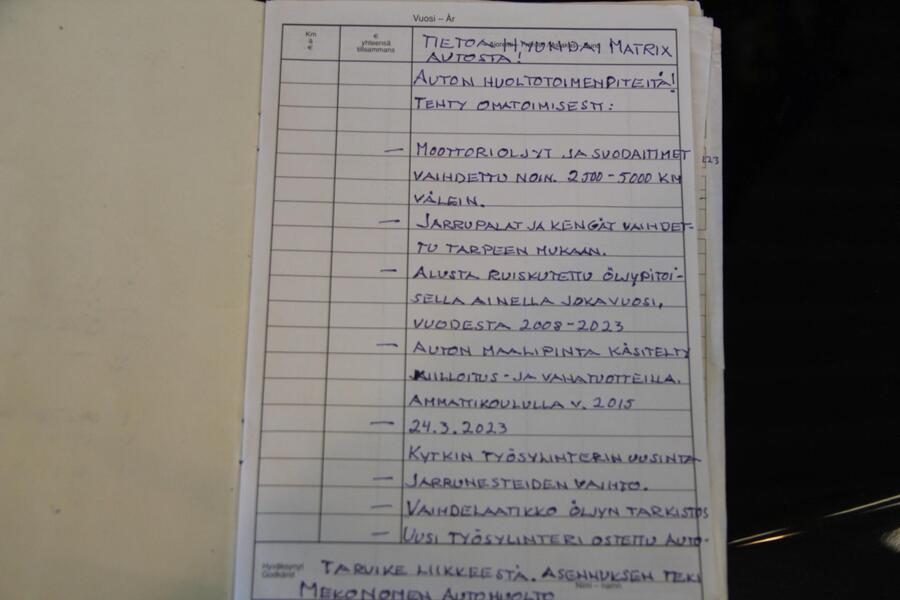 Vuosi – År
Km
à
€
€
yhteensä
tillsammans
TIETOA HYUNDAI MATRIX
AUTOSTA!
AUTON HUOLTOTOIMENPITEITÄ!
TEHTY OMATOIMISESTI:
— MOOTTORIÖLJYT JA SUODATTIMET
VAIHDETTU NOIN. 2500-5000 KM
VÄLEIN.
— JARRUPALAT JA KENGÄT VAIHDET-
TU TARPEEN MUKAAN.
— ALUSTA RUISKUTETTU ÖLJYPITOI-
SELLA AINELLA JOKAVUOSI,
VUODESTA 2008-2023
— AUTON MAALIPINTA KÄSITELTY
KIILLOITUS- JA VAHATUOTTEILLA.
AMMATTIKOULULLA V. 2015
— 24.3.2023
KYTKIN TYÖSYLINTERIN UUSINTA
— JARRUNESTEIDEN VAIHTO.
— VAIHDELAATIKKO ÖLJYN TARKISTUS
— UUSI TYÖSYLINTERI OSTETTU AUTO-
Hyväksynyt
Godkänd
TARVIKE LIIKKEESTÄ. ASENNUKSEN TEKI
Nimi – namn
MEKONOMEN AUTOHUOLTO